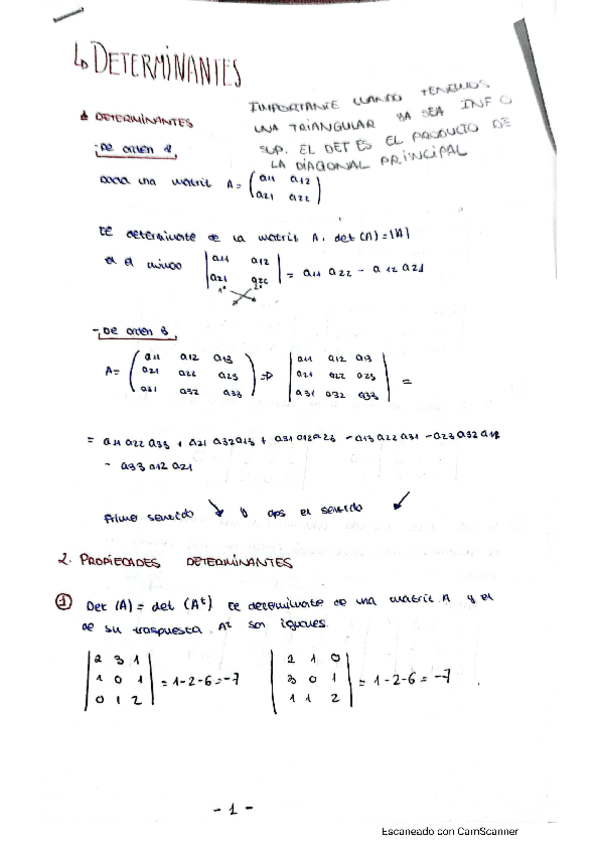 4. DETERMINANTES
IMPORTANTE CUANDO TENEMOS
UNA TRIANGULAR YA SEA INF O
SUP. EL DET ES EL PRODUCTO DE
LA DIAGONAL PRINCIPAL
1 DETERMINANTES
-De orden 2
Dada una matriz A = ( a11 a12
a21 a22 )
El determinante de la matriz A, det (A) = |A|
es el número | a11 a12
a21 a22 | = a11 a22 - a12 a21
1º 2º
- De orden 3
A = ( a11 a12 a13 ⇒ | a11 a12 a13
a21 a22 a23 a21 a22 a23 =
a31 a32 a33 ) a31 a32 a33 |
= a11 a22 a33 + a21 a32 a13 + a31 a12 a23 - a13 a22 a31 - a23 a32 a11
- a33 a12 a21
Primero sentido ↘ y dps el sentido ↙
2. PROPIEDADES DETERMINANTES
① Det (A) = det (Aᵗ) El determinante de una matriz A y el
de su traspuesta Aᵗ son iguales.
| 2 3 1 | 2 1 0
1 0 1 = 1-2-6 = -7 3 0 1 = 1-2-6 = -7
0 1 2 | 1 1 2 |
- 1 -
Escaneado con CamScanner